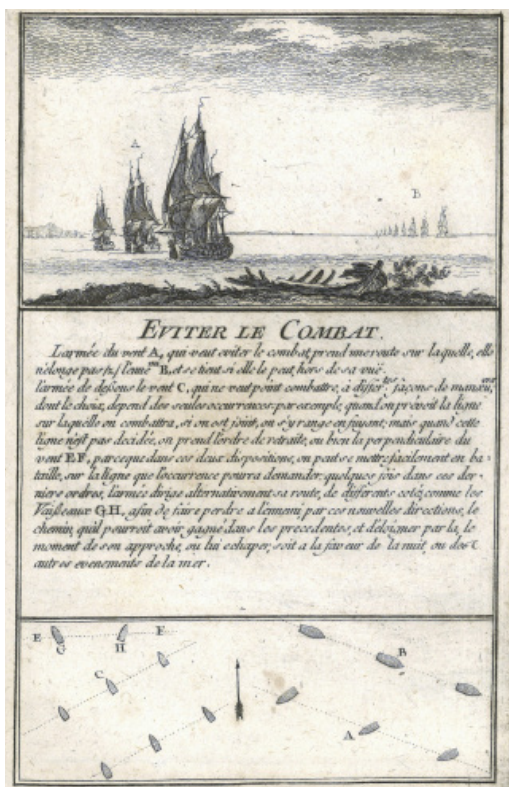 A
B
EVITER LE COMBAT.
L'armée du vent A, qui veut eviter le combat, prend une route sur laquelle, elle
n'elonge pas l'ennemi B, et se tient si elle le peut, hors de sa vuë.
l'armée de dessous le vent C, qui ne veut point combattre, à façons de
dont le choix, depend des seules occurrences par exemple, quand on prévoit la ligne
sur laquelle on combattra, si on est joint, on s'y range en fuyant; mais quand cette
ligne n'est pas decidée, on prend l'ordre de retraite, ou bien la perpendiculaire du
vent E.F, parceque dans ces deux dispositions, on peut se mettre facilement en ba-
taille, sur la ligne que l'occurrence pourra demander, quelque fois dans ces der-
niers ordres, l'armée dirige alternativement sa route, de differents coté, comme les
Vaisseaux G.H, afin de faire perdre a l'ennemi par ces nouvelles directions, le
chemin, qu'il pourroit avoir, gagné dans les precedentes, et deloigner par la, le
moment de son approche, ou lui echaper, soit a la faveur de la nuit, ou des
autres evenements de la mer.
E G H F
C
B
A